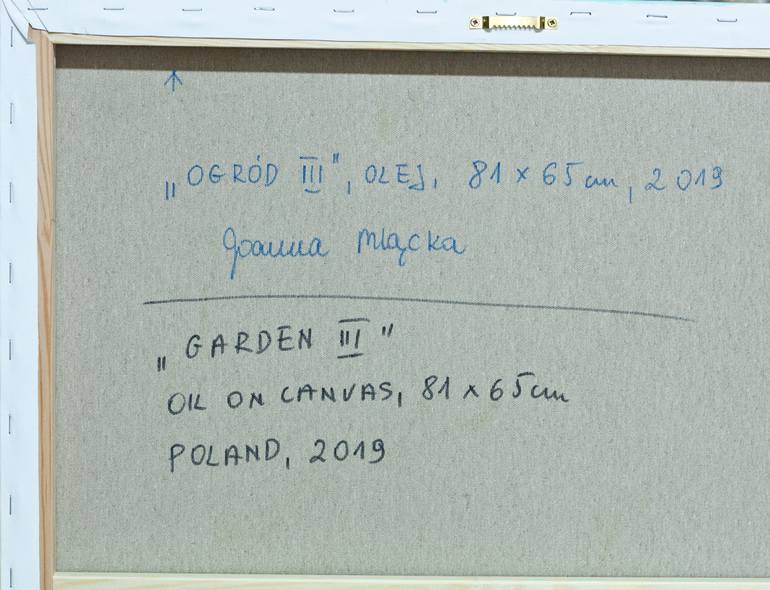 „OGRÓD III", OLEJ, 81 x 65 cm, 2019
Joanna Mlącka
„GARDEN III"
OIL ON CANVAS, 81 x 65 cm
POLAND, 2019